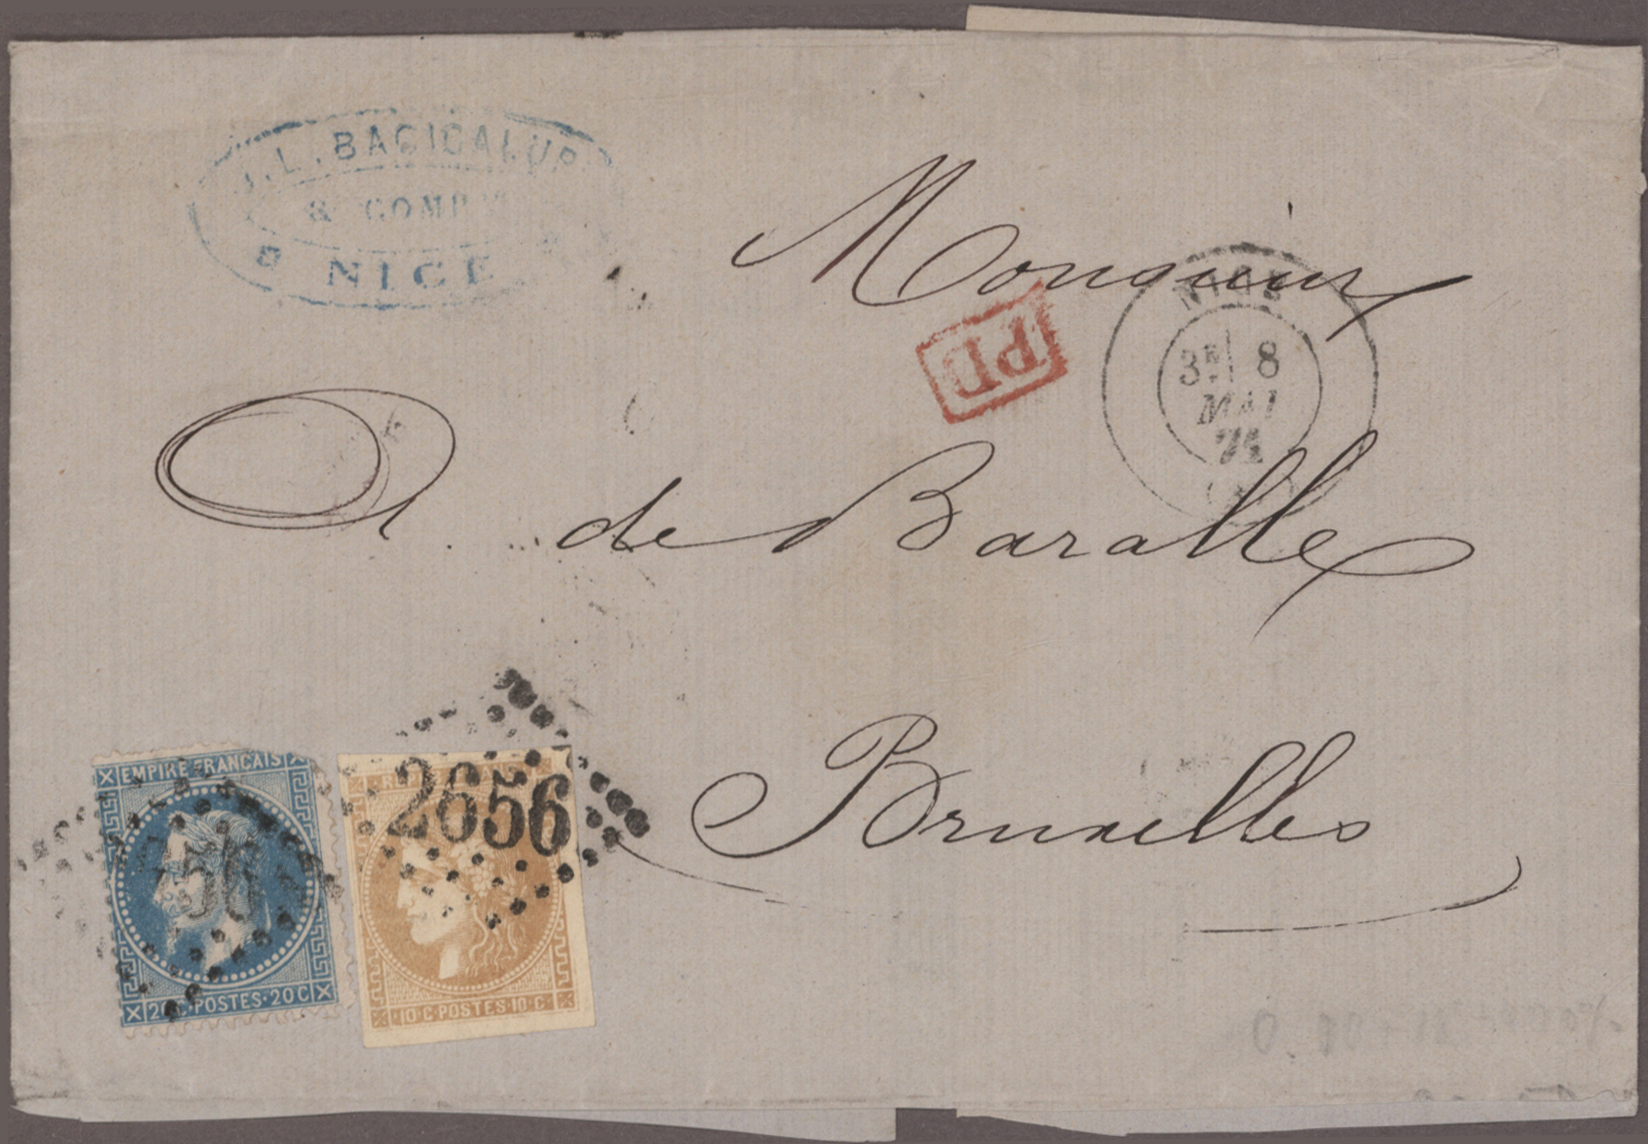 J.L. BACICALUP
& COMP
NICE
Monsieur
PD
NICE
3E 8
MAI
71
A. de Baralle
Bruxelles
2656
56
EMPIRE FRANÇAIS
20 C. POSTES. 20 C
10. C. POSTES. 10. C.